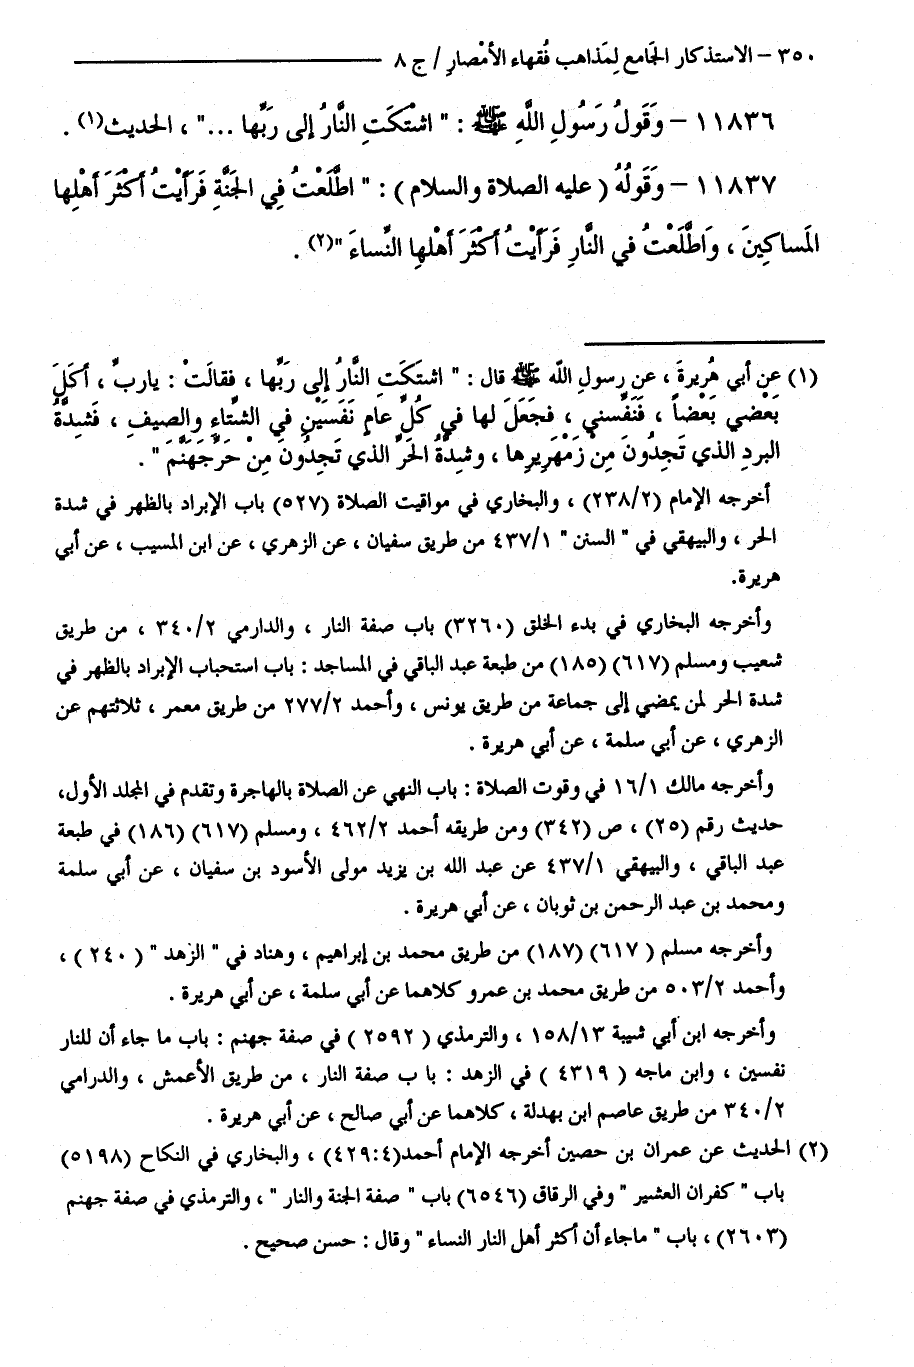 ٣٥٠ – الاستذكار الجَامع لِمَذاهب فُقهاء الأمْصارِ / ج ٨
١١٨٣٦ – وَقَولُ رَسُولِ اللَّهِ ﷺ : " اشْتَكَتِ النَّارُ إلى رَبِّها ..." ، الحديث(١) .
١١٨٣٧ – وَقَولُهُ ( عليه الصلاة والسلام ) : " اطَّلَعْتُ فِي الجَنَّةِ فَرَأَيْتُ أَكْثَرَ أَهْلِها
المَساكِينَ ، وَاطَّلَعْتُ في النَّارِ فَرَأَيْتُ أَكْثَرَ أَهْلِها النِّساءَ "(٢) .
(١) عن أبي هُريرةَ ، عن رسولِ اللَّه ﷺ قال : " اشتَكَتِ النَّارُ إلى رَبِّها ، فقالَتْ : ياربِّ ، أكَلَ
بَعْضي بَعْضاً ، فَنَفِّسني ، فجَعَلَ لها في كُلِّ عامٍ نَفَسَيْنِ في الشتَاءِ والصيفِ ، فَشِدَّةُ
البردِ الذي تَجِدُونَ مِنْ زَمْهَرِيرِها ، وشِدَّةُ الحَرِّ الذي تَجِدُونَ مِنْ حَرِّ جَهَنَّمَ " .
أخرجه الإمام (٢٣٨/٢) ، والبخاري في مواقيت الصلاة (٥٢٧) باب الإبراد بالظهر في شدة
الحر ، والبيهقي في " السنن " ٤٣٧/١ من طريق سفيان ، عن الزهري ، عن ابن المسيب ، عن أبي
هريرة.
وأخرجه البخاري في بدء الخلق (٣٢٦٠) باب صفة النار ، والدارمي ٣٤٠/٢ ، من طريق
شعيب ومسلم (٦١٧) (١٨٥) من طبعة عبد الباقي في المساجد : باب استحباب الإبراد بالظهر في
شدة الحر لمن يمضي إلى جماعة من طريق يونس ، وأحمد ٢٧٧/٢ من طريق معمر ، ثلاثتهم عن
الزهري ، عن أبي سلمة ، عن أبي هريرة .
وأخرجه مالك ١٦/١ في وقوت الصلاة : باب النهي عن الصلاة بالهاجرة وتقدم في المجلد الأول،
حديث رقم (٢٥) ، ص (٣٤٢) ومن طريقه أحمد ٤٦٢/٢ ، ومسلم (٦١٧) (١٨٦) في طبعة
عبد الباقي ، والبيهقي ٤٣٧/١ عن عبد الله بن يزيد مولى الأسود بن سفيان ، عن أبي سلمة
ومحمد بن عبد الرحمن بن ثوبان ، عن أبي هريرة .
وأخرجه مسلم ( ٦١٧) (١٨٧) من طريق محمد بن إبراهيم ، وهناد في " الزهد " ( ٢٤٠ ) ،
وأحمد ٥٠٣/٢ من طريق محمد بن عمرو كلاهما عن أبي سلمة ، عن أبي هريرة .
وأخرجه ابن أبي شيبة ١٥٨/١٣ ، والترمذي ( ٢٥٩٢ ) في صفة جهنم : باب ما جاء أن للنار
نفسين ، وابن ماجه ( ٤٣١٩ ) في الزهد : با ب صفة النار ، من طريق الأعمش ، والدرامي
٣٤٠/٢ من طريق عاصم ابن بهدلة ، كلاهما عن أبي صالح ، عن أبي هريرة .
(٢) الحديث عن عمران بن حصين أخرجه الإمام أحمد(٤٢٩:٤) ، والبخاري في النكاح (٥١٩٨)
باب " كفران العشير " وفي الرقاق (٦٥٤٦) باب " صفة الجنة والنار " ، والترمذي في صفة جهنم
(٢٦٠٣) ، باب " ماجاء أن أكثر أهل النار النساء " وقال : حسن صحيح .